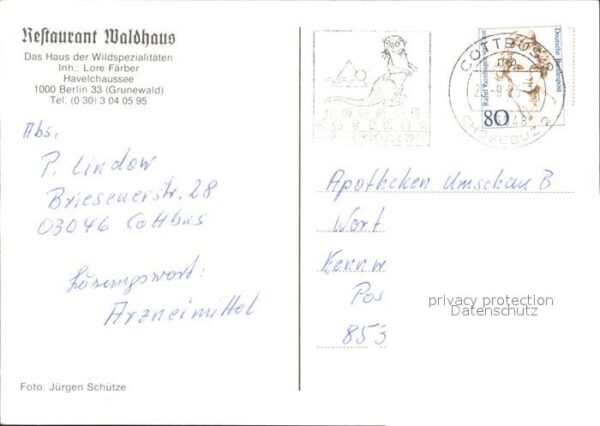 Restaurant Waldhaus
Das Haus der Wildspezialitäten
Inh.: Lore Färber
Havelchaussee
1000 Berlin 33 (Grunewald)
Tel. (0 30) 3 04 05 95
Abs.
P. Lindow
Briesener str. 28
03046 Cottbus
Lösungswort:
Arzneimittel
Foto: Jürgen Schütze
COTTBUS 2
CHOSEBUZ 2
Deutsche Bundespost
Rahel Varnhagen
80
Apotheken Umschau B
Wort
Kennw
Pos
853
privacy protection
Datenschutz